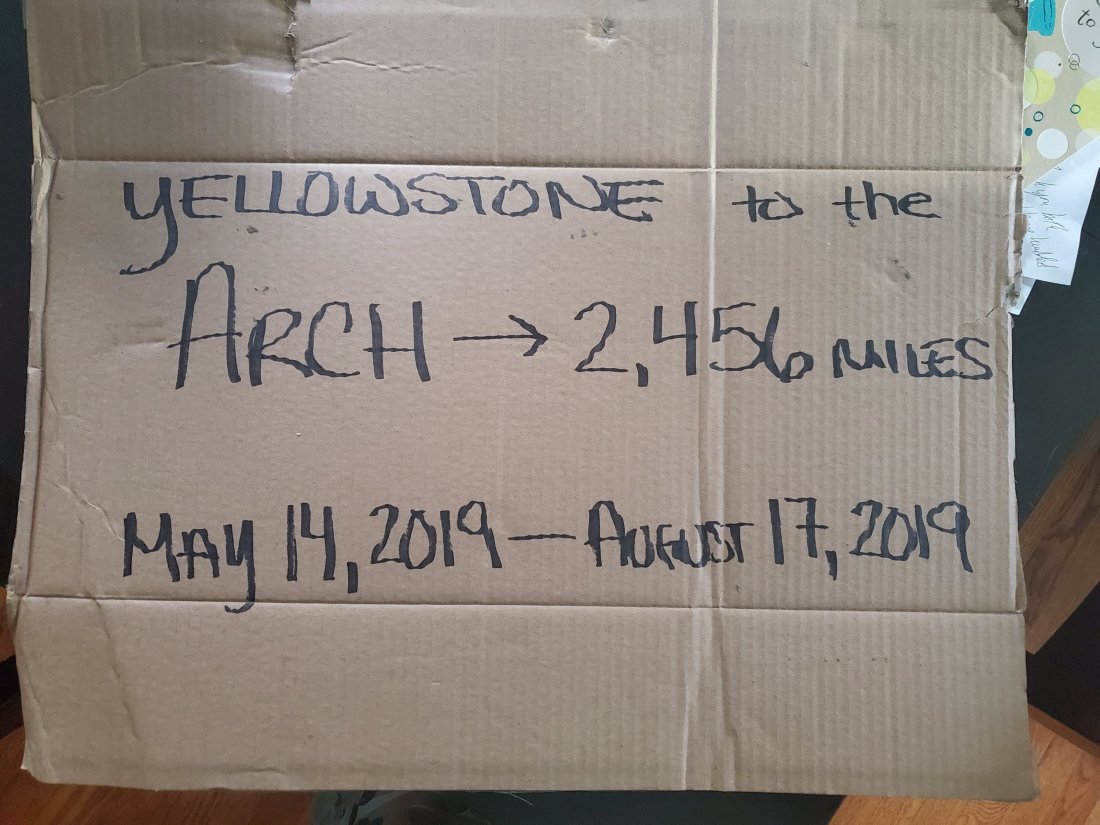 YELLOWSTONE to the
ARCH → 2,456 MILES
MAY 14, 2019 — AUGUST 17, 2019
to